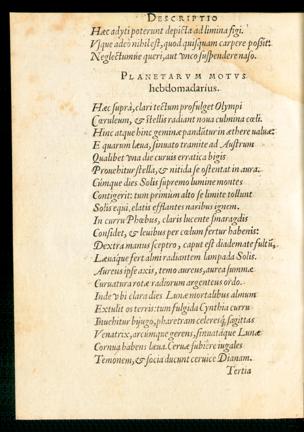 DESCRIPTIO
Hæc adyti poterunt depicta ad limina figi.
Vsque adeò nihil est, quod quisquam carpere possit:
Neglectumúe queri, aut vnco suspendere naso.
PLANETARVM MOTVS
hebdomadarius.
Hæc suprà, clari tectum profulget Olympi
Cœruleum, & stellis radiant noua culmina cœli.
Hinc atque hinc geminæ pandûtur in æthere ualuæ:
E quarum læua, sinuato tramite ad Austrum
Qualibet vna die curuis erratica bigis
Prouehitur stella, & nitida se ostentat in aura.
Cúmque dies Solis supremo lumine montes
Contigerit: tum primùm alto se limite tollunt
Solis equi, elatis efflantes naribus ignem.
In curru Phœbus, claris lucente smaragdis
Considet, & leuibus per cœlum fertur habenis:
Dextra manus sceptro, caput est diademate fultũ,
Læuáque fert almi radiantem lampada Solis.
Aureus ipse axis, temo aureus, aurea summæ
Curuatura rotæ radiorum argenteus ordo.
Inde vbi clara dies Lunæ mortalibus almum
Extulit os terris: tum fulgida Cynthia curru
Inuehitur bijugo, pharetram celeresq́; sagittas
Venatrix, arcúmque gerens, sinuatáque Lunæ
Cornua habens læua. Ceruæ subiêre iugales
Temonem, & socia ducunt ceruice Dianam.
Tertia